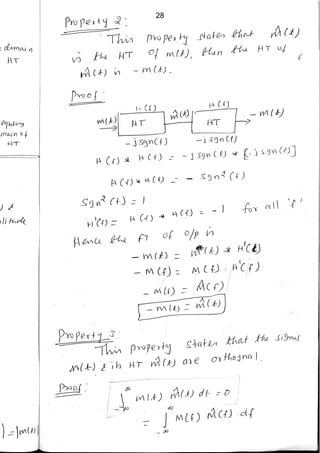 28
Property 2:
This property states that m̂(t)
is the HT of m(t), then the HT of
m̂(t) is - m(t).
Proof:
H(f) H(f)
m(t) HT m̂(t) HT - m(t)
- j sgn(f) - j sgn(f)
H(f) * H(f) = - j sgn(f) * [- j sgn(f)]
H(f) * H(f) = - sgn²(f)
Sgn²(f) = 1
H'(f) = H(f) * H(f) = - 1 for all 'f'
Hence the FT of o/p is
- m(t) = m(t) * H'(t)
- M(f) = M(f) . H'(f)
- M(f) = M̂(f)
- m(t) = m̂(t)
Property 3
This property states that the signal
m(t) & its HT m̂(t) are orthognal.
Proof:
∫ m(t) m̂(t) dt = 0
-∞
∞
= ∫ M(f) M̂(f) . df
-∞
domain
HT
HT
) = |m(t)|